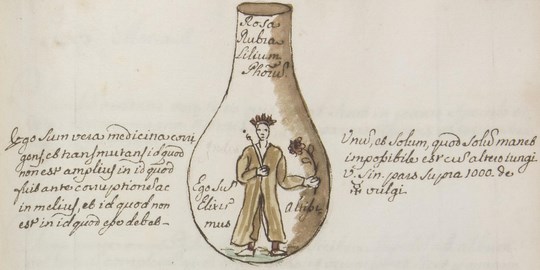 Rosa
Rubra
Lilium
Phorus.
Ego Sum vera medicina corri
gens, et transmutans id quod
non est amplius in id quod
fuit ante corruptionem ac
in melius, et id quod non
est in id quod esse debet
Ego Su
Elixir
mus
Unus, et Solum, quod Solus manet
impossibile est cum altero iungi
pars Supra 1000. de
vulgi